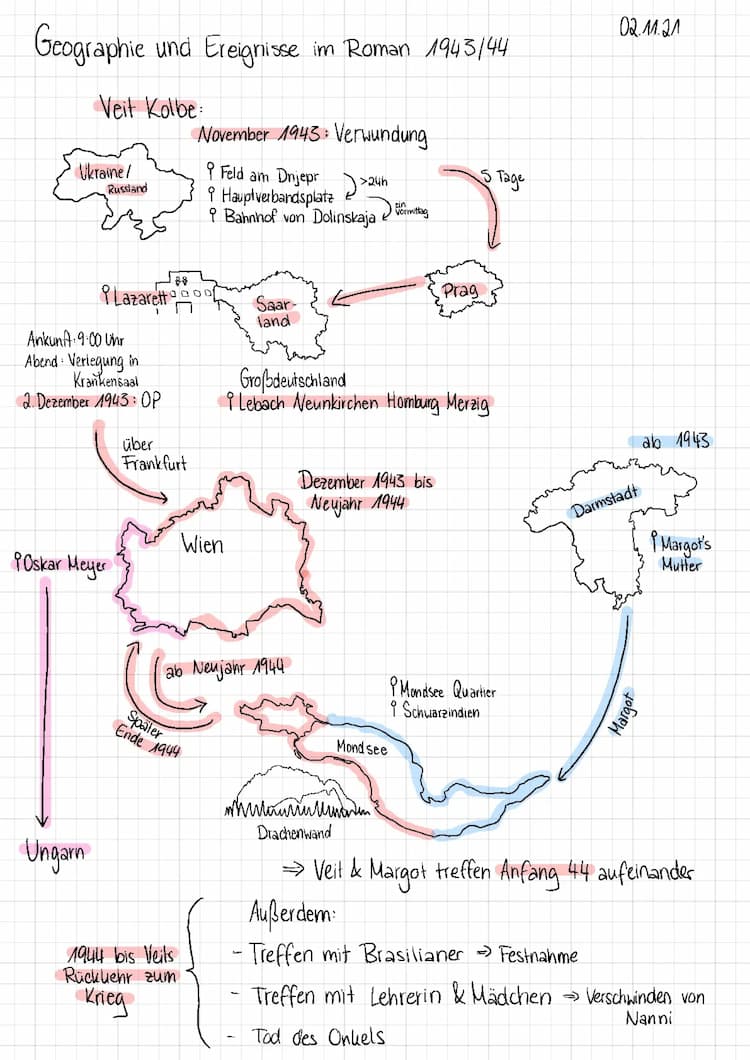 02.11.21
Geographie und Ereignisse im Roman 1943/44
Veit Kolbe:
November 1943: Verwundung
Ukraine/
Russland
Feld am Dnjepr
Hauptverbandsplatz
Bahnhof von Dolinskaja
>24h
ein
Vormittag
5 Tage
Prag
Saar-
land
Lazarett
Ankunft: 9:00 Uhr
Abend: Verlegung in
Krankensaal
2. Dezember 1943: OP
Großdeutschland
Lebach Neunkirchen Homburg Merzig
über
Frankfurt
Dezember 1943 bis
Neujahr 1944
Wien
Oskar Meyer
Ungarn
ab 1943
Darmstadt
Margot's
Mutter
Margot
ab Neujahr 1944
Später
Ende 1944
Mondsee Quartier
Schwarzindien
Mondsee
Drachenwand
⇒ Veit & Margot treffen Anfang 44 aufeinander
1944 bis Veits
Rückkehr zum
Krieg
Außerdem:
- Treffen mit Brasilianer ⇒ Festnahme
- Treffen mit Lehrerin & Mädchen ⇒ Verschwinden von
Nanni
- Tod des Onkels